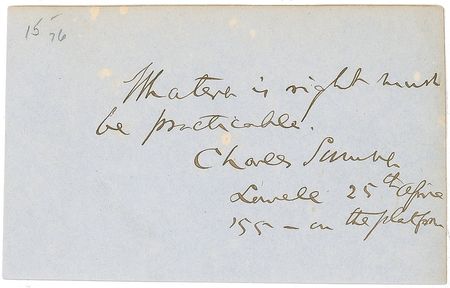 15
76
Whatever is right must
be practicable.
Charles Sumner
Lowell 25th April
'55 – on the platform